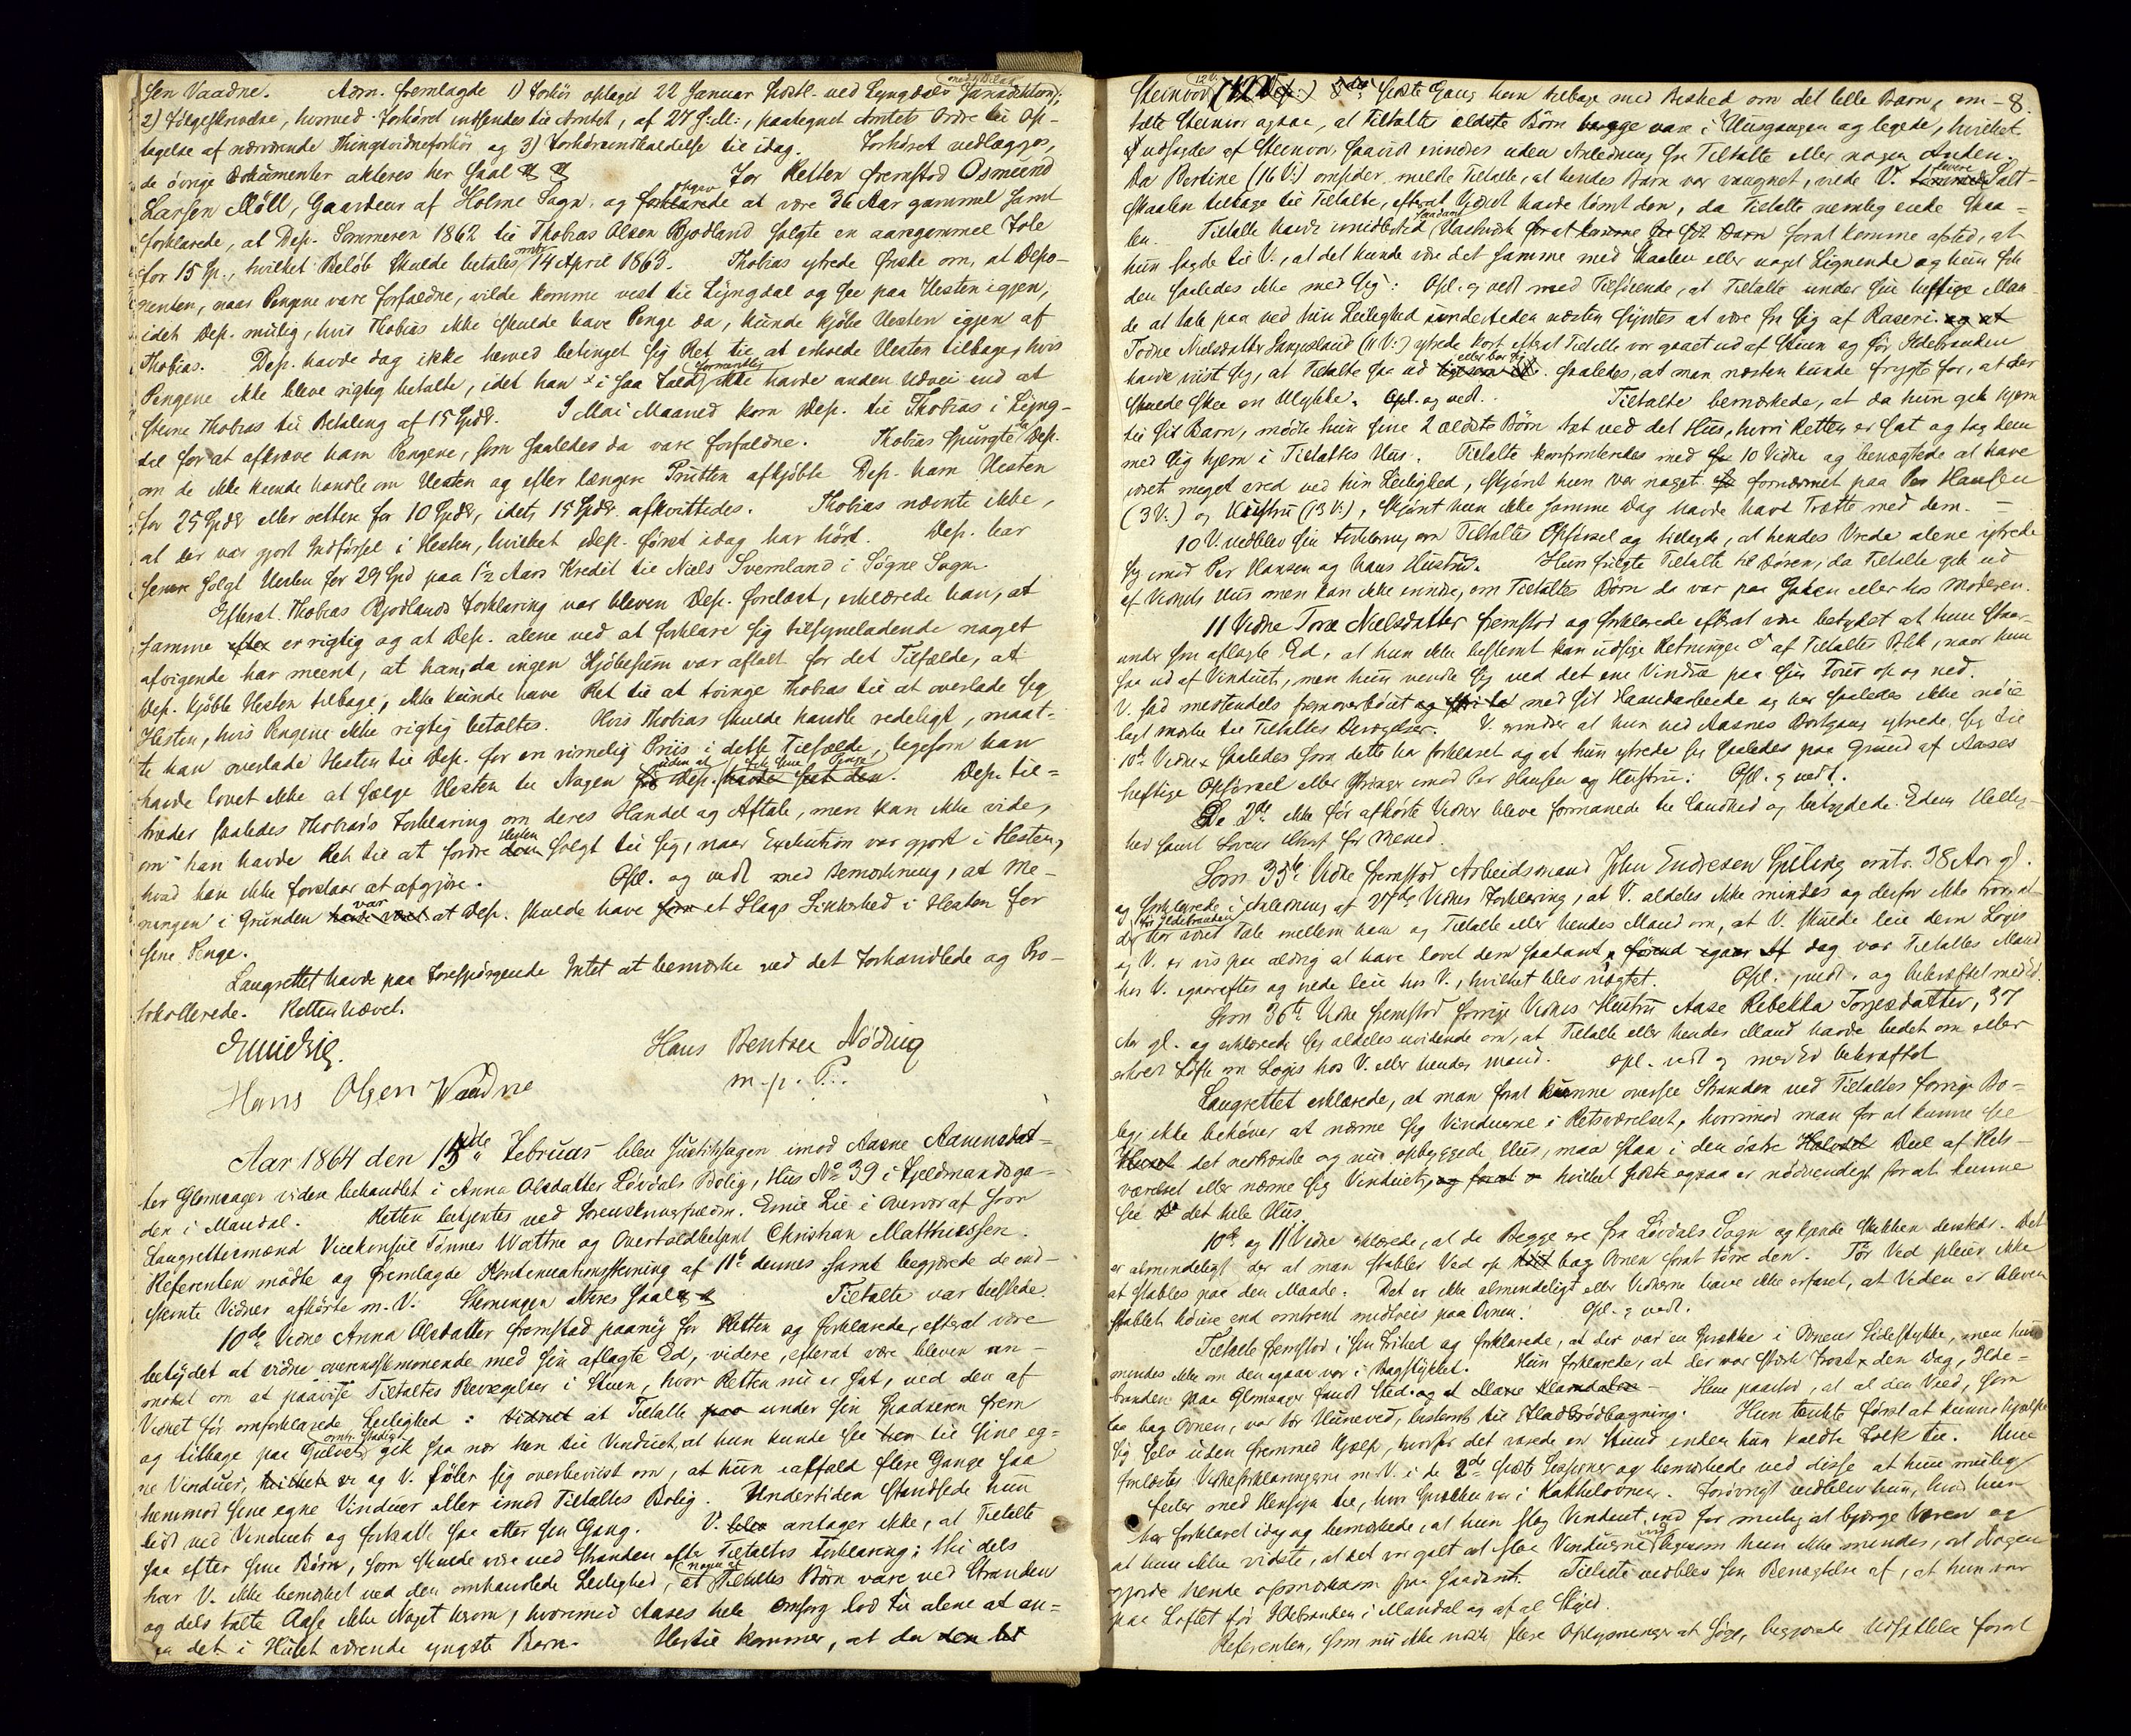 sen Vaadne. Adm. fremlagde 1) Forhör optaget 22 Januar sidstl. ved Lyngdals Jurisdiktion;
2) Følgeskrivelse, hvorved Forhöret indsendes til Amtet, af 27 s. M., paategnet Amtets Ordre til Op-
tagelse af nærværende Thingsvidneforhör og 3) Forhörsindkaldelse til idag. Forhöret vedlægges,
de övrige Dokumenter akteres her saal. For Retten fremstod Osmund
Larsen Möll, Gaardbruger af Holme Sogn, og opgav at være 36 Aar gammel samt
forklarede, at Dep. Sommeren 1862 til Thobias Olsen Bjodland solgte en aargammel Fole
for 15 Sp., hvilket Belöb skulde betales omtr. 14 April 1863. Thobias ytrede Önske om, at Depo-
nenten, naar Pengene vare forfaldne, vilde komme vest til Lyngdal og see paa Hesten igjen,
idet Dep. mulig, hvis Thobias ikke skulde have Penge da, kunde kjöbe Hesten igjen af
Thobias. Dep. havde dog ikke herved betinget sig Ret til at erholde Hesten tilbage, hvis
Pengene ikke bleve rigtig betalte, idet han i saa Fald formentlig ikke havde anden Udvei end at
stevne Thobias til Betaling af 15 Spdlr. I Mai Maaned kom Dep. til Thobias i Lyng-
dal for at afkræve ham Pengene, som saaledes da vare forfaldne. Thobias spurgte da Dep.
om de ikke kunde handle om Hesten og efter længere Prutten afkjöbte Dep. ham Hesten
for 25 Spdlr eller rettere for 10 Spdlr, idet 15 Spdlr afkvittedes. Thobias nævnte ikke,
at der var gjort Indförsel i Hesten, hvilket Dep. först idag har hört. Dep. har
senere solgt Hesten for 29 Spd paa 1½ Aars Kredit til Niels Svemland i Sögne Sogn.
Efterat Thobias Bjodlands Forklaring var bleven Dep. forelæst, erklærede han, at
samme er rigtig og at Dep. alene ved at forklare sig tilsyneladende noget
afvigende har meent, at han, da ingen Kjöbesum var aftalt for det Tilfælde, at
Dep. kjöbte Hesten tilbage, ikke kunde have Ret til at tvinge Thobias til at overlade sig
Hesten, hvis Pengene ikke rigtig betaltes. Hvis Thobias skulde handle redeligt, maat-
te han overlade Hesten til Dep. for en rimelig Priis i dette Tilfælde, ligesom han
havde lovet ikke at sælge Hesten til Nogen uden at Dep. fik sine Penge. Dep. til-
træder saaledes Thobias's Forklaring om deres Handel og Aftale, men kan ikke vide,
om han havde Ret til at fordre Hesten solgt til sig, naar Exekution var gjort i Hesten,
hvad han ikke forstaar at afgjöre. Opl. og vedt. med Bemærkning, at Me-
ningen i Grunden var at Dep. skulde have et Slags Sikkerhed i Hesten for
sine Penge.
Laugrettet havde paa Forespörgende Intet at bemærke ved det Forhandlede og Pro-
tokollerede. Retten hævet.
Emil Lie. Hans Bentsen Nöding
Hans Olsen Vaadne m. p. P.
Aar 1864 den 15de Februar blev Justitssagen imod Aasne Aanensdat-
ter Glomsager videre behandlet i Anna Olsdatter Lövdals Bolig, Hus No 39 i Kjeldmandsga-
den i Mandal. Retten betjentes ved Sorenskriverfuldm. Emil Lie i Overvær af som
Laugrettesmænd Vicekonsul Tönnes Wattne og Overtoldbetjent Christian Matthiessen.
Referenten mödte og fremlagde Kontinuationsstevning af 11te dennes samt begjærede de ind-
stevnte Vidner afhörte m. V. Stevningen akteres saal. Tiltalte var tilstede.
10de Vidne Anna Olsdatter fremstod paany for Retten og forklarede, efterat være
betydet at vidne overensstemmende med sin aflagte Ed, videre, efterat være bleven an-
modet om at paavise Tiltaltes Bevægelser i Stuen, hvor Retten nu er sat, ved den af
Vidnet för omforklarede Leilighed: at Tiltalte under sin Spadseren frem
og tilbage paa Gulvet omtr. stadigt gik saa nær hen til Vinduet, at hun kunde see til sine eg-
ne Vinduer, og V. föler sig overbeviist om, at hun iafald flere Gange saa
henimod sine egne Vinduer eller imod Tiltaltes Bolig. Undertiden standsede hun
lidt ved Vinduet og fortsatte saa atter sin Gang. V. antager ikke, at Tiltalte
saa efter sine Börn, som skulde være ved Stranden efter Tiltaltes Forklaring; thi dels
har V. ikke bemærket ved den omhandlede Leilighed, at nogen af Tiltaltes Börn vare ved Stranden
og dels talte Aase ikke Noget herom, hvorimod Aases hele Omsorg lod til alene at an-
gaa det i Huset værende yngste Barn. Hertil kommer, at da
Steinvor (12 V.) sidste Gang kom tilbage med Besked om det lille Barn, om-
talte Steinvor ogsaa, at Tiltaltes ældste Börn begge vare i Husgangen og legede, hvilket
udsagdes af Steinvor, saavidt erindres uden Anledning fra Tiltalte eller nogen Anden.
Da Bertine (16 V.) omsider meldte Tiltalte, at hendes Barn var vaagnet, vilde V. levere Salt-
skaalen tilbage til Tiltalte, efterat have tömt den, da Tiltalte nemlig eiede Skaa-
len. Tiltalte havde imidlertid saadant Hastværk forat komme afsted, at
hun sagde til V., at det kunde være det samme med Skaalen eller noget Lignende og hun fik
den saaledes ikke med sig. Opl. og vedt. med Tilföiende, at Tiltalte under sin heftige Maa-
de at tale paa ved hin Leilighed undertiden næsten syntes at være fra sig af Raseri.
Todne Nielsdatter (11 V.) ytrede kort efterat Tiltalte var gaaet ud af Stuen og för Ildebranden
havde viist sig, at Tiltalte saa ud eller bar sig saaledes, at man næsten kunde frygte for, at der
skulde skee en Ulykke. Opl. og vedt. Tiltalte bemærkede, at da hun gik hjem
til sit Barn, mödte hun sine 2 ældste Börn tæt ved det Hus, hvori Retten er sat og tog dem
med sig hjem i Tiltaltes Hus. Tiltalte konfronteredes med 10 Vidne og benægtede at have
været meget vred ved hin Leilighed, skjönt hun var noget fornærmet paa Per Hansen
(3 V.) og Hustru (13 V.), skjönt hun ikke samme Dag havde havt Trætte med dem. –
10 V. vedblev sin Forklaring om Tiltaltes Opförsel og tillagde, at hendes Vrede alene ytrede
sig imod Per Hansen og hans Hustru. Hun fulgte Tiltalte til Dören, da Tiltalte gik ud
af Vidnets Hus men kan ikke erindre, om Tiltaltes Börn da var paa Gaden eller hos Moderen.
11 Vidne Tore Nielsdatter fremstod og forklarede efterat være betydet at hun staar
under sin aflagte Ed, at hun ikke bestemt kan udsige Retningen af Tiltaltes Blik, naar hun
saa ud af Vinduet, men hun vendte sig ved det ene Vindu paa sin Tour op og ned.
V. sad mestendels fremoverböiet med sit Haandarbeide og har saaledes ikke nöie
lagt mærke til Tiltaltes Bevægelser. V. erindrer at hun ved Aasnes Bortgang ytrede sig til
10de Vidne saaledes som dette har forklaret og at hun ytrede sig saaledes paa Grund af Aases
heftige Opförsel eller Ytringer imod Per Hansen og Hustru. Opl. og vedt.
De 2de ikke för afhörte Vidner bleve formanede til Sandhed og betydede Edens Hellig-
hed samt Lovens Straf for Meened.
Som 35te Vidne fremstod Arbeidsmand John Endresen omtr. 38 Aar gl.
og forklarede i Anledning af 27de Vidnes Forklaring, at V. aldeles ikke mindes og derfor ikke troer, at
der för Ildebranden har været Tale mellem ham og Tiltalte eller hendes Mand om, at V. skulde leie dem Logis
og V. er vis paa aldrig at have lovet dem saadant. dag var Tiltaltes Mand
hos V. igaaraftes og vilde leie hos V., hvilket blev nægtet. Opl., vedt. og bekræftet med Ed.
Som 36te Vidne fremstod forrige Vidnes Hustru Aase Rebekka Torjesdatter, 37
Aar gl. og erklærede sig aldeles uvidende om, at Tiltalte eller hendes Mand havde bedet om eller
erholdt Löfte om Logis hos V. eller hendes Mand. Opl. vedt og med Ed bekræftet
Laugrettet erklærede, at man forat kunne oversee Stranden ved Tiltaltes forrige Bo-
lig, ikke behöver at nærme sig Vinduerne i Retsværelset, hvorimod man for at kunne see
det nedbrændte og nu opbyggede Hus, maa staa i den östre Deel af Rets-
værelset eller nærme sig Vinduet, hvilket sidste ogsaa er nödvendigt for at kunne
see det hele Hus.
10de og 11 Vidne erklærede, at de Begge ere fra Lövdals Sogn og kjende Skikken dersteds. Det
er almindeligt der at man stabler Ved op bag Ovnen forat törre den. Tör Ved pleier ikke
at stables paa den Maade. Det er ikke almindeligt eller Vidnerne have ikke erfaret, at Veden er bleven
stablet höiere end omtrent midtveis paa Ovnen. Opl. og vedt.
Tiltalte fremstod i sin Frihed og forklarede, at der var en Sprække i Ovnens Sidestykke, men hun
mindes ikke om den ogsaa var i Bagstykket. Hun forklarede, at der var stærk Frost den Dag, Ilde-
branden paa Glomsager fandt Sted. Hun paastod, at al den Ved, som
laa bag Ovnen, var tör Huneved, bestemt til Fladbrödbagning. Hun tænkte först at kunne hjælpe
sig selv uden fremmed Hjælp, hvorfor det varede en Stund inden hun kaldte Folk til. Hun
foreholdtes Vidneforklaringerne m. V. i de 2de sidste Sessioner og bemærkede ved disse at hun mulig
feiler med Hensyn til, hvor Sprækken var i Kakkelovnen. Forövrigt vedblev hun, hvad hun
har forklaret idag og bemærkede, at hun slog Vinduet ind for mulig at bjerge Varen og
at hun ikke vidste, at det var galt at slaa Vinduerne ind ligesom hun ikke mindes, at Nogen
gjorde hende opmærksom paa saadant. Tiltalte vedblev sin Benægtelse af, at hun var
paa Loftet för Ildebranden i Mandal og af al Skyld.
Referenten, som nu ikke vidste flere Oplysninger at söge, begjærede Udsættelse forat
8.